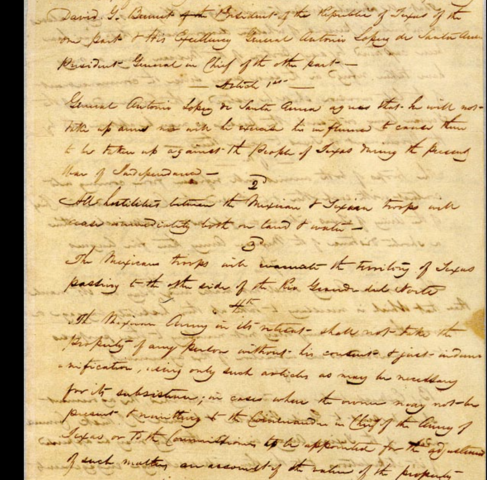 David G. Burnet President of the Republic of Texas of the
one part & His Excellency General Antonio Lopez de Santa Anna
President General in Chief of the other part —
— Article 1st —
General Antonio Lopez de Santa Anna agrees that he will not
take up arms nor will he exercise his influence to cause them
to be taken up against the People of Texas during the present
War of Independence —
2d
All hostilities between the Mexican & Texian troops will
cease immediately both on land & water —
3d
The Mexican troops will evacuate the territory of Texas
passing to the other side of the Rio Grande del Norte
4th
The Mexican Army in its retreat shall not take the
property of any person without his consent & just indem-
nification, using only such articles as may be necessary
for its subsistence, in cases where the owner may not be
present & remitting to the Commander in Chief of the Army of
Texas or to the Commissioner to be appointed for the adjustment
of such matters an account of the value of the property